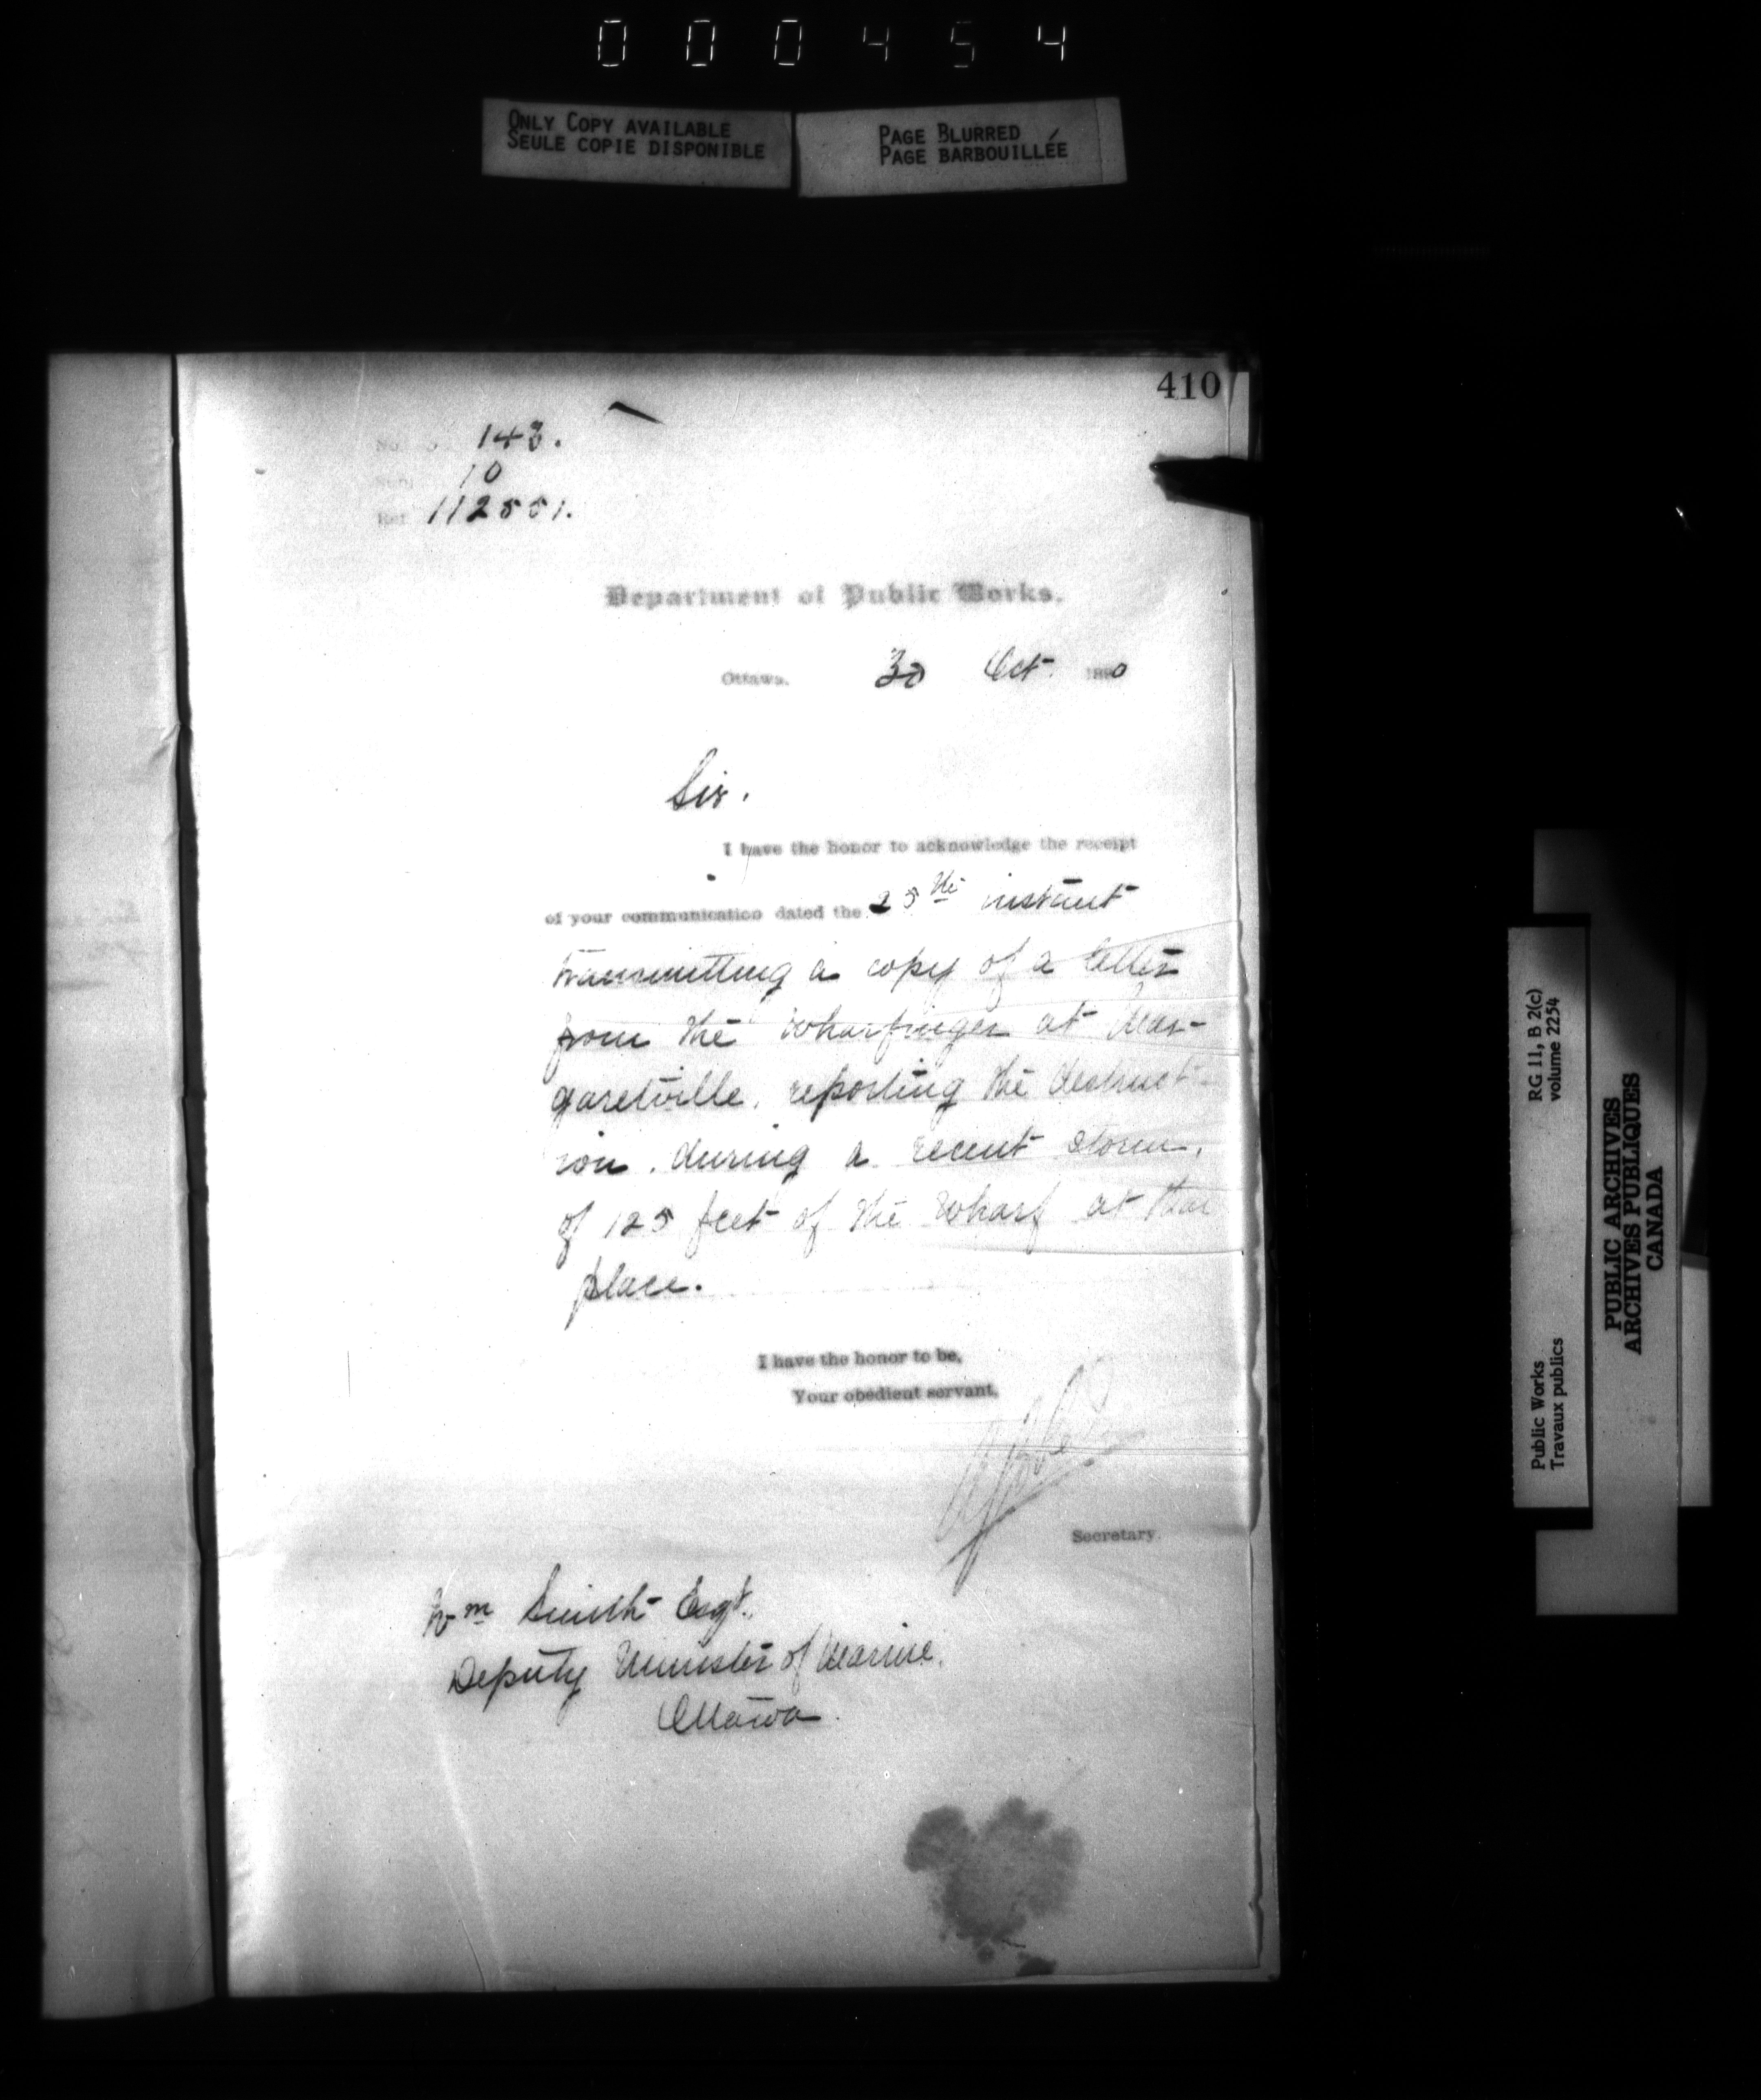 000454
ONLY COPY AVAILABLE
SEULE COPIE DISPONIBLE
PAGE BLURRED
PAGE BARBOUILLÉE
410
No. 143.
Subj. 10
Ref. 112551.
Department of Public Works.
Ottawa, 30 Oct. 1890
Sir,
I have the honor to acknowledge the receipt
of your communication dated the 25th instant
transmitting a copy of a letter
from the Wharfinger at Mar-
garetville, reporting the destruct-
ion, during a recent storm,
of 125 feet of the Wharf at that
place.
I have the honor to be,
Your obedient servant,
Secretary.
Wm Smith Esqr.
Deputy Minister of Marine.
Ottawa.
RG 11, B 2(c)
volume 2254
Public Works
Travaux publics
PUBLIC ARCHIVES
ARCHIVES PUBLIQUES
CANADA